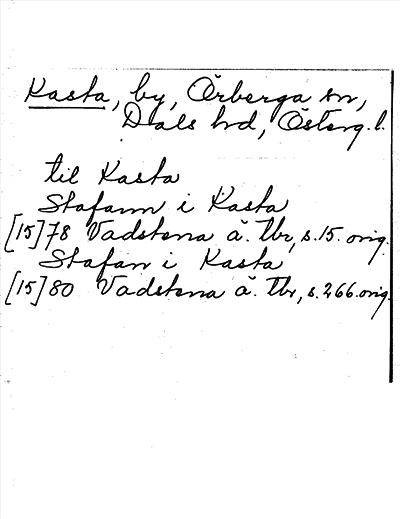 Kasta, by, Örberga sn,
Dals hd, Österg. l.
til Kasta
Stafann i Kasta
[15]78 Vadstena ä. tbr, s. 15. orig.
Stafan i Kasta
[15]80 Vadstena ä. tbr, s. 266. orig.